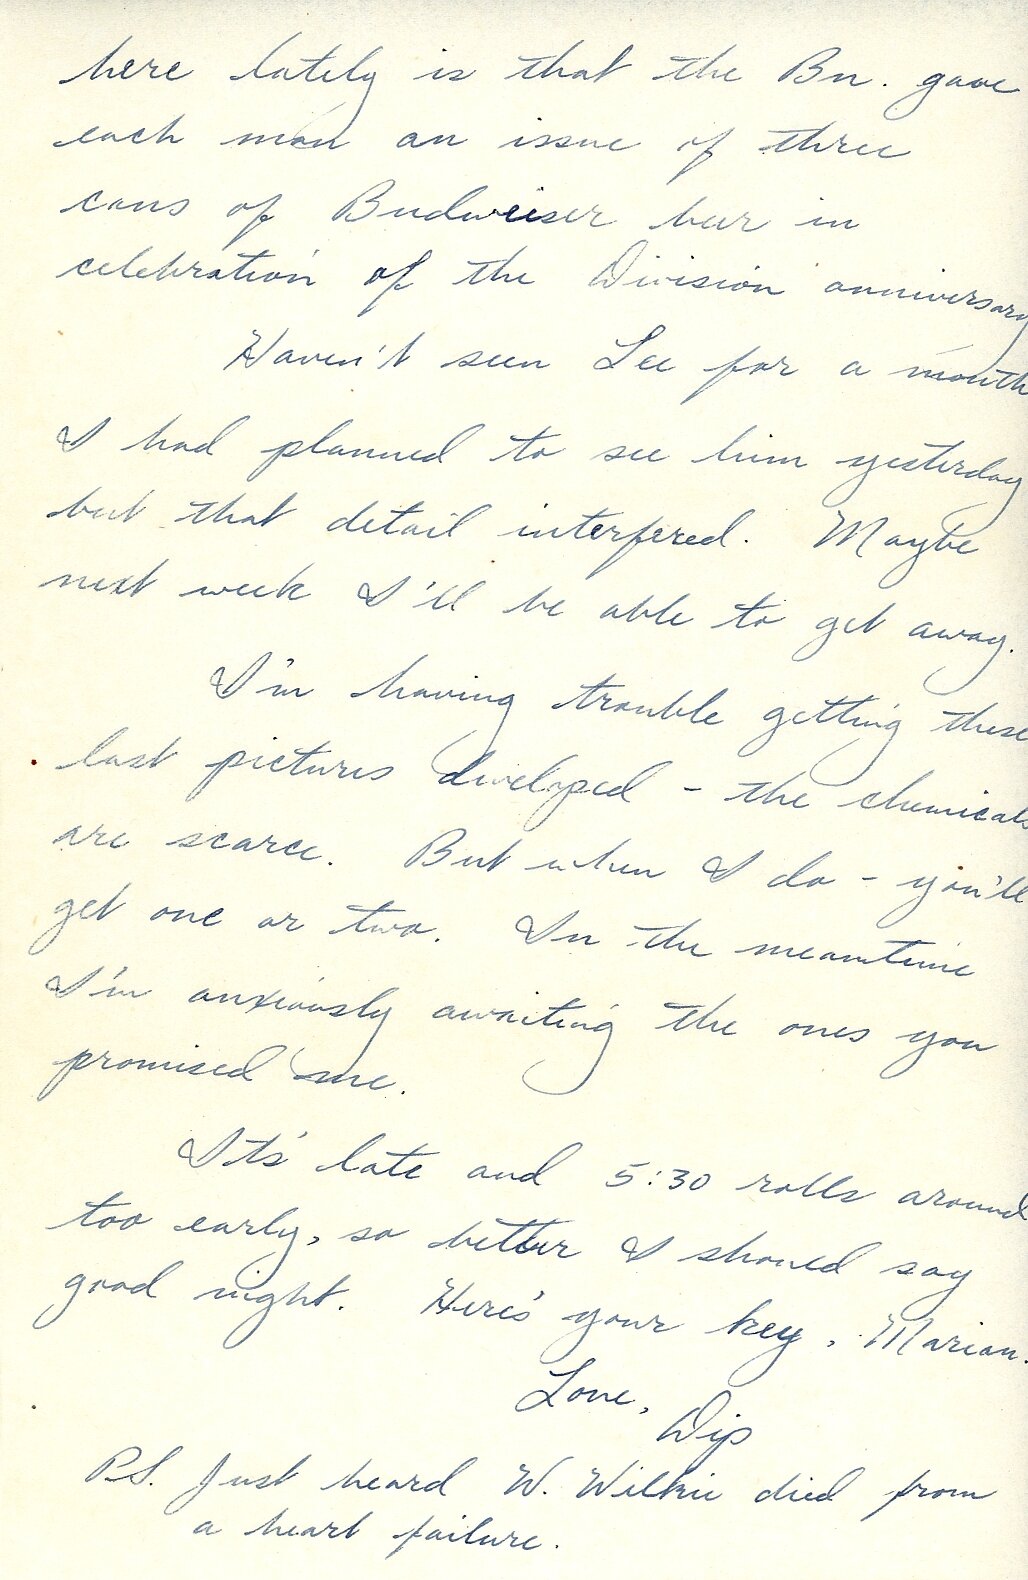 here lately is that the Bn. gave
each man an issue of three
cans of Budweiser beer in
celebration of the Division anniversary
Haven't seen Lee for a month
I had planned to see him yesterday
but that detail interfered. Maybe
next week I'll be able to get away.
I'm having trouble getting these
last pictures developed - the chemicals
are scarce. But when I do - you'll
get one or two. In the meantime
I'm anxiously awaiting the ones you
promised me.
It's late and 5:30 rolls around
too early, so better I should say
good night. Here's your key, Marian.
Love,
Dip
P.S. Just heard W. Wilkie died from
a heart failure.